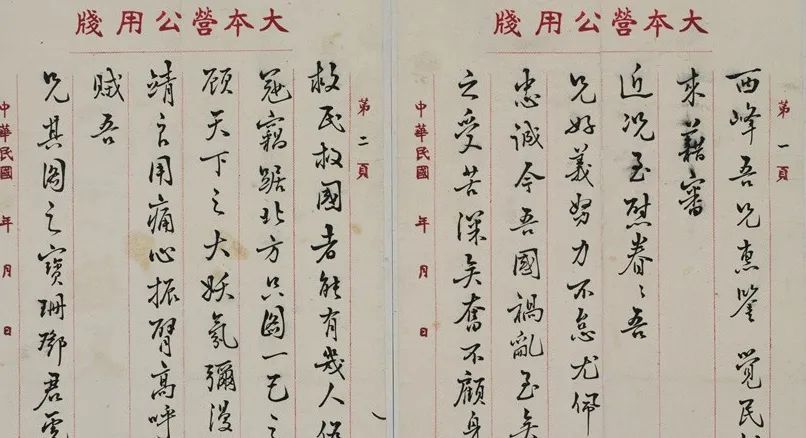 大本營公用牋
第一頁
西峰吾兄惠鑒覺民
來藉審
近況至慰眷眷吾
兄好義努力不怠尤佩
忠誠今吾國禍亂至矣
之受苦深矣奮不顧身
中華民國 年 月 日
大本營公用牋
第二頁
救民救國者能有幾人
冦竊踞北方只圖一己之
顧天下之大妖氛彌漫
靖言用痛心振臂高呼
賊吾
兄其圖之寶珊鄧君
中華民國 年 月 日